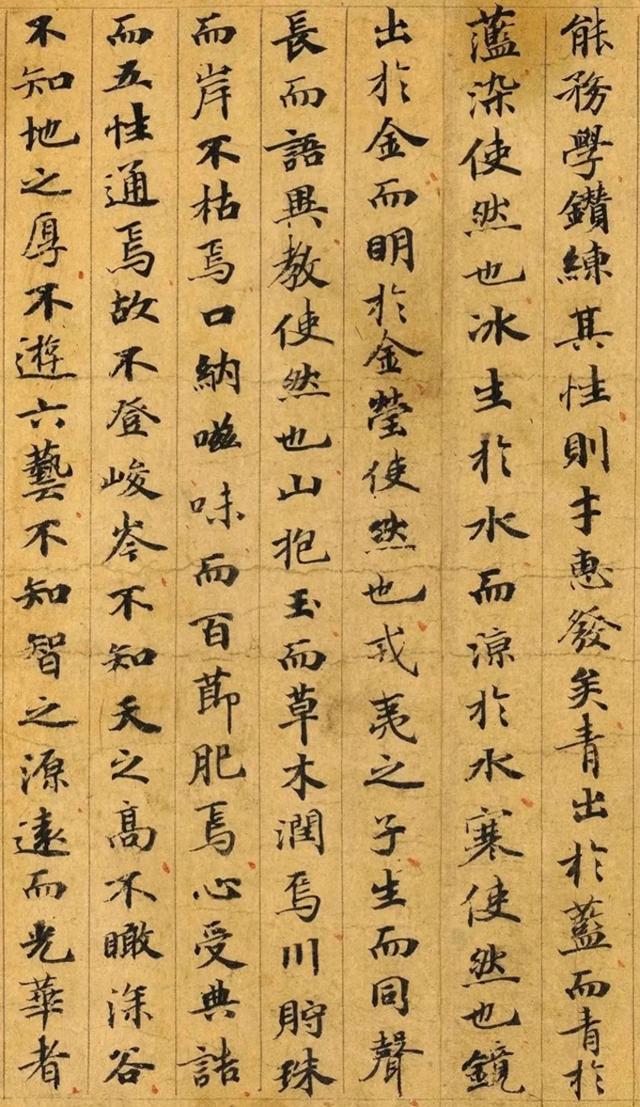 能務學鑽練其性則才惠發矣青出於藍而青於
藍染使然也冰生於水而涼於水寒使然也鏡
出於金而明於金瑩使然也戎夷之子生而同聲
長而語異教使然也山抱玉而草木潤焉川貯珠
而岸不枯焉口納滋味而百節肥焉心受典誥
而五性通焉故不登峻岑不知天之高不瞰深谷
不知地之厚不遊六藝不知智之源遠而光華者